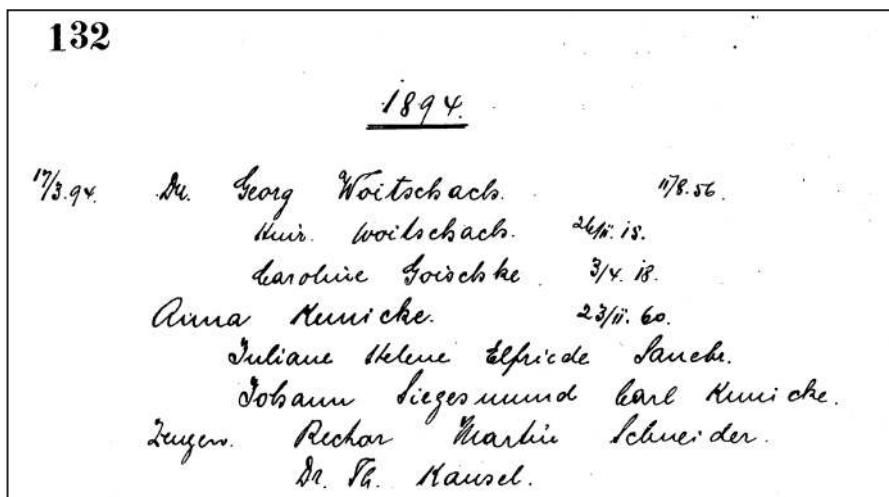 132
1894.
17/3.94. Dr. Georg Woitschach. 11/8.56.
Woitschach. 26/11.18.
Caroline Goischke 3/4.18.
Anna Kunicke. 23/11.60.
Juliane Helene Elfriede
Johann Siegesmund Carl Kunicke.
Zeugen. Martin Schneider.
Dr. Th. Kausel.